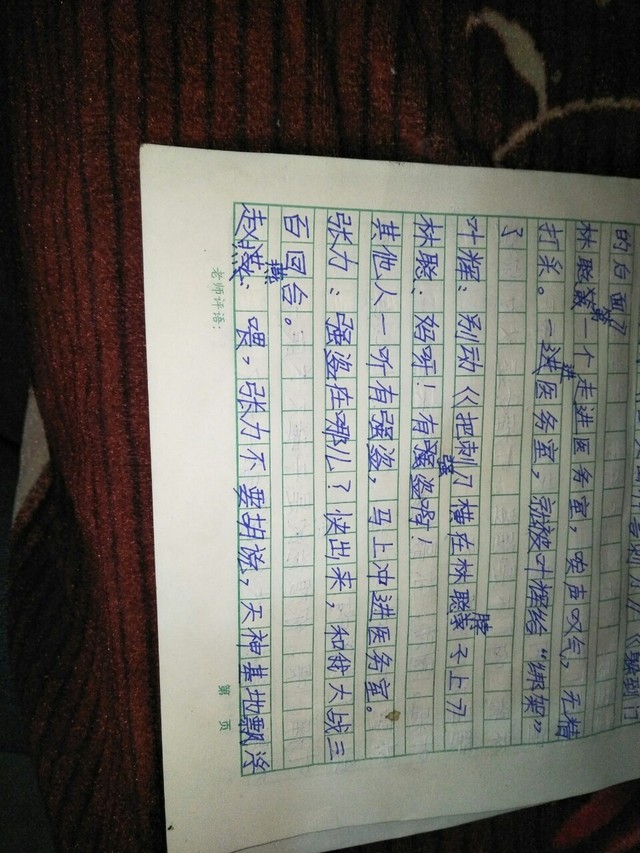 的后面
林聪第一个走进医务室，唉声叹气，无精
打采。一进医务室，就被叶辉给“绑架”
了
叶辉：别动《把刺刀横在林聪脖子上刀
林聪：妈呀！有强盗啊！
其他人一听有强盗，马上冲进医务室。
张力：强盗在哪儿？快出来，和我大战三
百回合。
赵燕：喂，张力不要胡说，天神基地飘浮
老师评语：
第 页